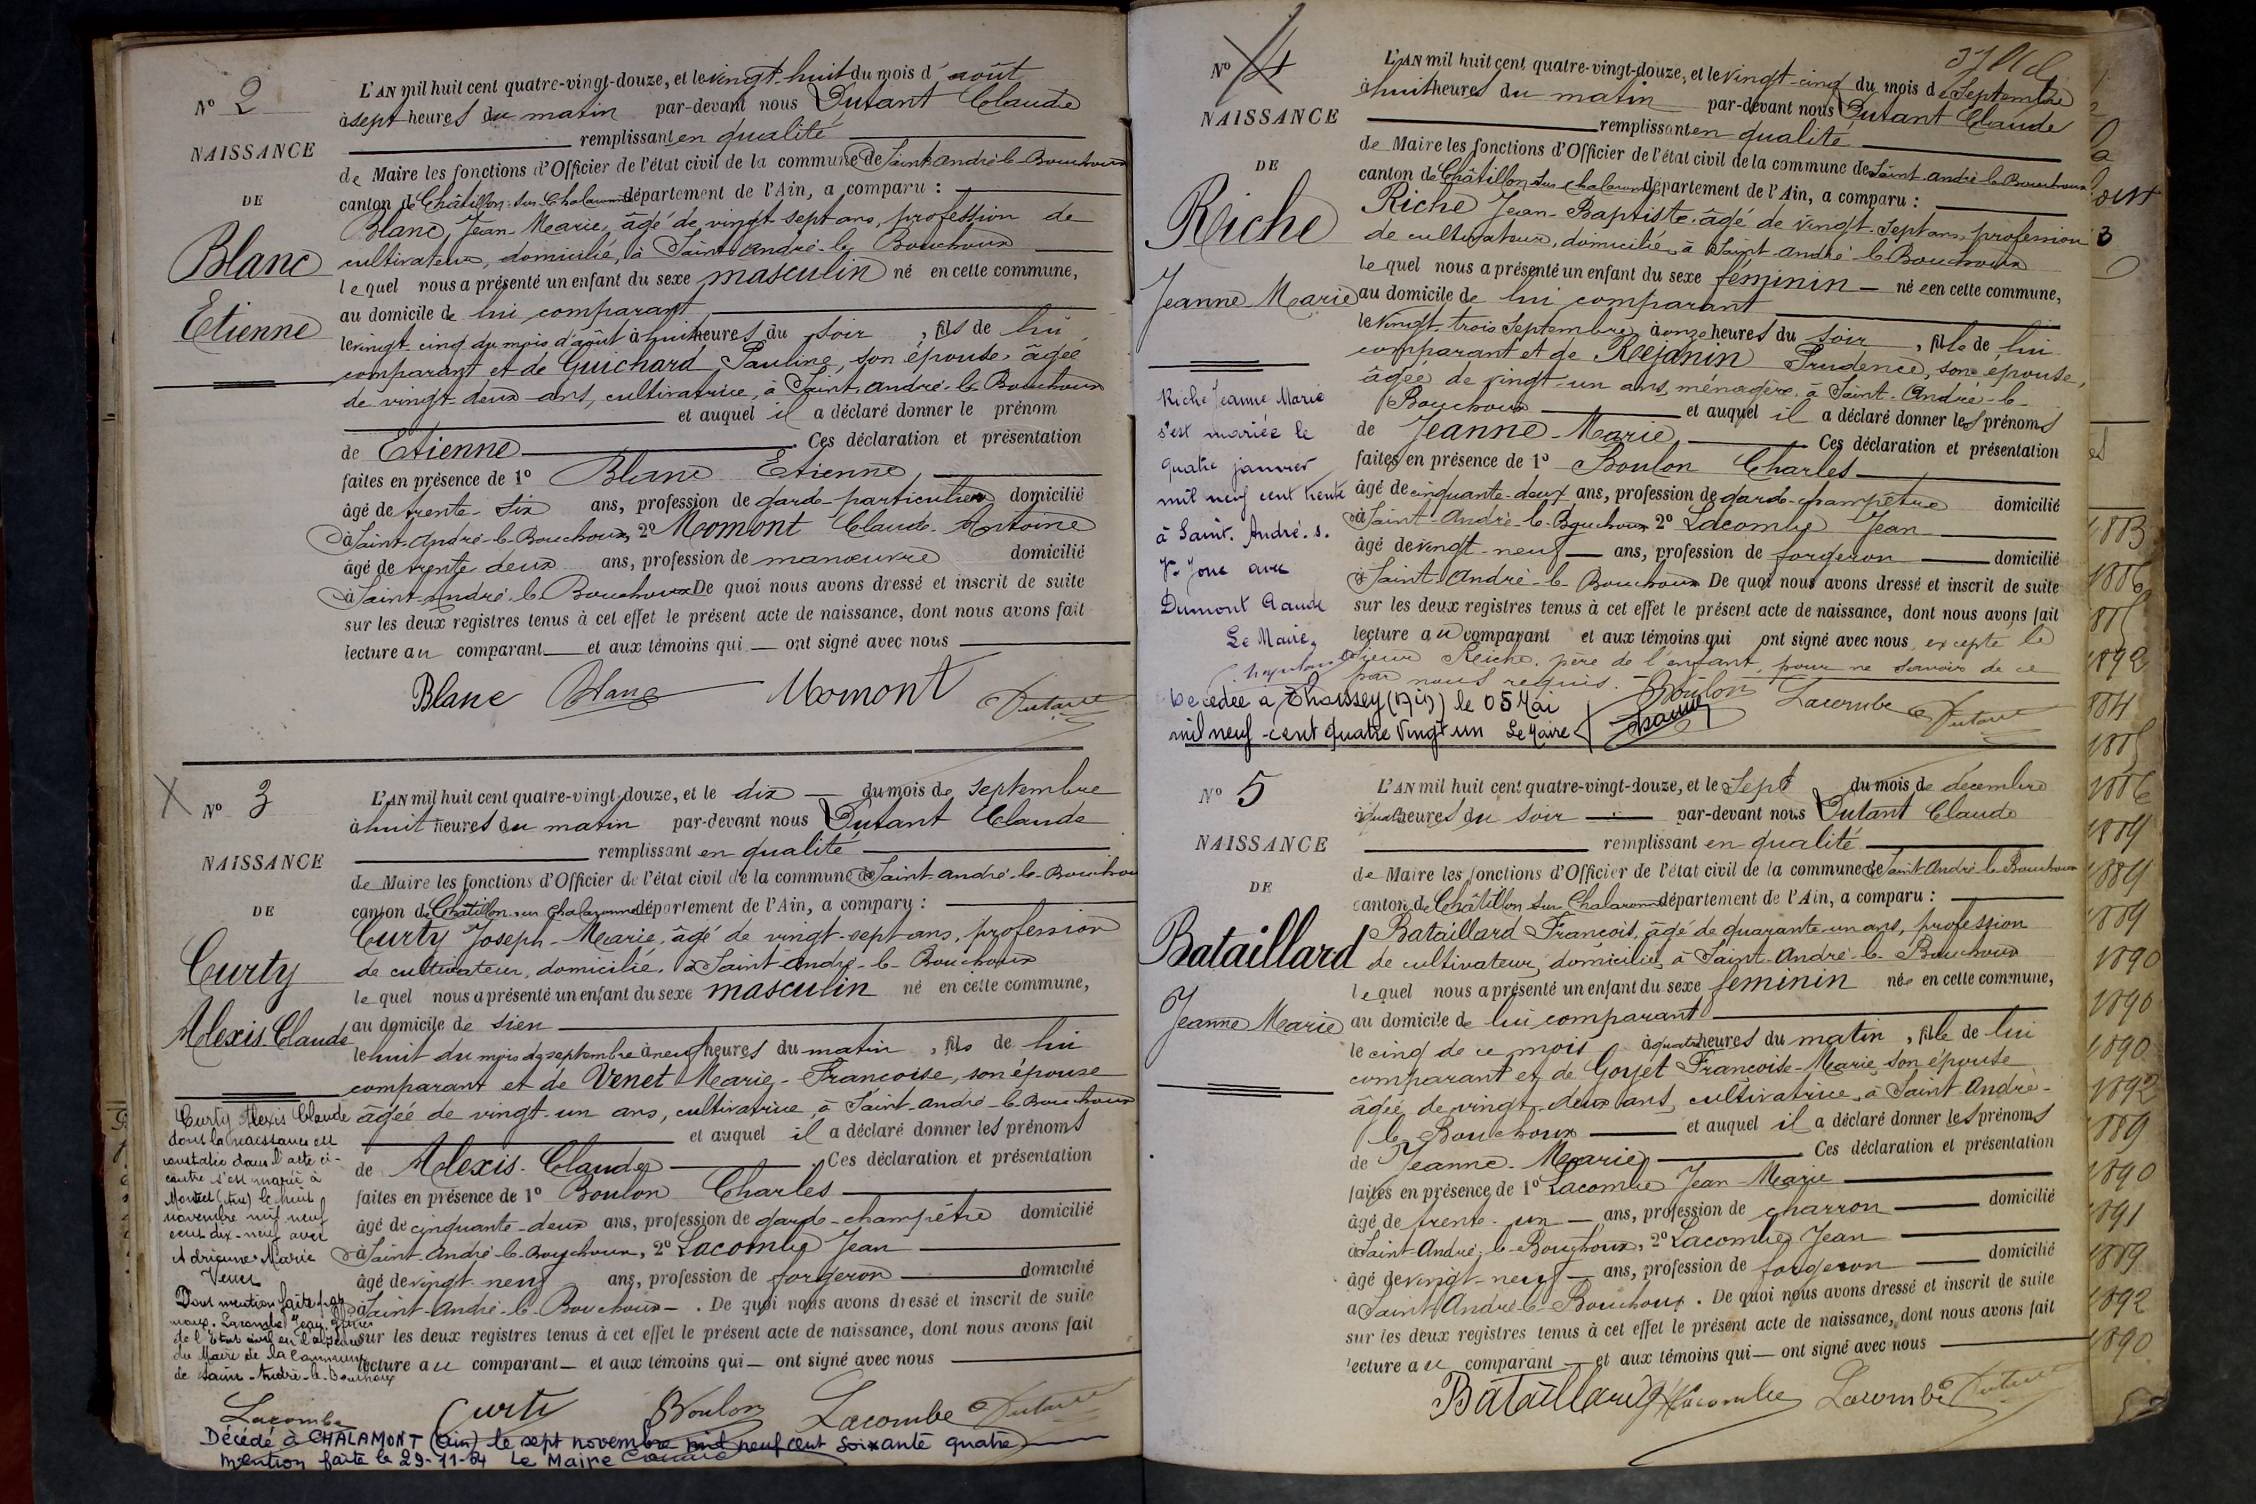 N° 2
NAISSANCE
DE
Blanc
Etienne
L'AN mil huit cent quatre-vingt-douze, et le vingt-huit du mois d'août
à sept heures du matin par-devant nous Dutant Claude
remplissant en qualité
de Maire les fonctions d'Officier de l'état civil de la commune de Saint-André-le-Bouchoux
canton de Châtillon-sur-Chalaronne département de l'Ain, a comparu :
Blanc, Jean-Marie, âgé de vingt-sept ans, profession de
cultivateur, domicilié, à Saint-André-le-Bouchoux
lequel nous a présenté un enfant du sexe masculin né en cette commune,
au domicile de lui comparant
le vingt-cinq du mois d'août à huit heures du soir, fils de lui
comparant et de Guichard Pauline, son épouse, âgée
de vingt-deux ans, cultivatrice, à Saint-André-le-Bouchoux
et auquel il a déclaré donner le prénom
de Etienne. Ces déclaration et présentation
faites en présence de 1° Blanc Etienne,
âgé de trente-six ans, profession de garde-particulier domicilié
à Saint-André-le-Bouchoux, 2° Momont Claude-Antoine
âgé de trente deux ans, profession de manœuvre domicilié
à Saint-André-le-Bouchoux De quoi nous avons dressé et inscrit de suite
sur les deux registres tenus à cet effet le présent acte de naissance, dont nous avons fait
lecture au comparant et aux témoins qui ont signé avec nous
Blanc Blanc Momont Dutant
N° 3
NAISSANCE
DE
Curty
Alexis Claude
L'AN mil huit cent quatre-vingt-douze, et le dix du mois de septembre
à huit heures du matin par-devant nous Dutant Claude
remplissant en qualité
de Maire les fonctions d'Officier de l'état civil de la commune de Saint-André-le-Bouchoux
canton de Châtillon-sur-Chalaronne département de l'Ain, a comparu :
Curty Joseph-Marie, âgé de vingt-sept ans, profession
de cultivateur, domicilié, à Saint-André-le-Bouchoux
lequel nous a présenté un enfant du sexe masculin né en cette commune,
au domicile de sien
le huit du mois de septembre à neuf heures du matin, fils de lui
comparant et de Venet Marie-Françoise, son épouse
âgée de vingt-un ans, cultivatrice à Saint-André-le-Bouchoux
et auquel il a déclaré donner les prénoms
de Alexis-Claude. Ces déclaration et présentation
faites en présence de 1° Boulon Charles
âgé de cinquante-deux ans, profession de garde-champêtre domicilié
à Saint-André-le-Bouchoux, 2° Lacombe Jean
âgé de vingt-neuf ans, profession de forgeron domicilié
à Saint-André-le-Bouchoux. De quoi nous avons dressé et inscrit de suite
sur les deux registres tenus à cet effet le présent acte de naissance, dont nous avons fait
lecture au comparant et aux témoins qui ont signé avec nous
Curty Alexis Claude
dont la naissance est
constatée dans l'acte ci-
contre s'est marié à
le huit
novembre mil neuf
cent dix-neuf avec
Adrienne Marie
Dont mention faite par
nous, Lacombe Jean,
de l'état civil en l'absence
du Maire de la Commune
de Saint-André-le-Bouchoux
Lacombe Curty Boulon Lacombe Dutant
Décédé à CHALAMONT (Ain) le sept novembre mil neuf cent soixante quatre
mention faite le 29-11-64 Le Maire
N° 4
NAISSANCE
DE
Riche
Jeanne Marie
L'AN mil huit cent quatre-vingt-douze, et le vingt-cinq du mois de Septembre
à huit heures du matin par-devant nous Dutant Claude
remplissant en qualité
de Maire les fonctions d'Officier de l'état civil de la commune de Saint-André-le-Bouchoux
canton de Châtillon-sur-Chalaronne département de l'Ain, a comparu :
Riche Jean-Baptiste, âgé de vingt-sept ans, profession
de cultivateur, domicilié, à Saint-André-le-Bouchoux
lequel nous a présenté un enfant du sexe féminin né e en cette commune,
au domicile de lui comparant
le vingt-trois Septembre, à onze heures du soir, fille de lui
comparant et de Réjanin Prudence, son épouse,
âgée de vingt-un ans, ménagère, à Saint-André-le-
Bouchoux et auquel il a déclaré donner les prénoms
de Jeanne-Marie, Ces déclaration et présentation
faites en présence de 1° Boulon Charles
âgé de cinquante-deux ans, profession de garde-champêtre domicilié
à Saint-André-le-Bouchoux 2° Lacombe Jean
âgé de vingt-neuf ans, profession de forgeron domicilié
à Saint-André-le-Bouchoux De quoi nous avons dressé et inscrit de suite
sur les deux registres tenus à cet effet le présent acte de naissance, dont nous avons fait
lecture au comparant et aux témoins qui ont signé avec nous, excepté le
sieur Riche, père de l'enfant, pour ne savoir de ce
par nous requis.
Boulon Lacombe Dutant
Riche Jeanne Marie
s'est mariée le
quatre janvier
mil neuf cent trente
à Saint. André. s.
V. Jonc avec
Dumont Claude
Le Maire,
Décédée à (Ain) le 05 Mai
mil neuf-cent quatre Vingt un Le Maire
N° 5
NAISSANCE
DE
Bataillard
Jeanne Marie
L'AN mil huit cent quatre-vingt-douze, et le sept du mois de décembre
à quatre heures du soir par-devant nous Dutant Claude
remplissant en qualité
de Maire les fonctions d'Officier de l'état civil de la commune de Saint-André-le-Bouchoux
canton de Châtillon-sur-Chalaronne département de l'Ain, a comparu :
Bataillard François, âgé de quarante-un ans, profession
de cultivateur, domicilié, à Saint-André-le-Bouchoux
lequel nous a présenté un enfant du sexe féminin née en cette commune,
au domicile de lui comparant
le cinq de ce mois à quatre heures du matin, fille de lui
comparant et de Goyet Françoise-Marie son épouse
âgée de vingt-deux ans, cultivatrice, à Saint-André-
le-Bouchoux et auquel il a déclaré donner les prénoms
de Jeanne-Marie, Ces déclaration et présentation
faites en présence de 1° Lacombe Jean-Marie
âgé de trente-un ans, profession de charron domicilié
à Saint-André-le-Bouchoux, 2° Lacombe, Jean
âgé de vingt-neuf ans, profession de forgeron domicilié
à Saint-André-le-Bouchoux. De quoi nous avons dressé et inscrit de suite
sur les deux registres tenus à cet effet le présent acte de naissance, dont nous avons fait
lecture au comparant et aux témoins qui ont signé avec nous
Bataillard Lacombe Lacombe Dutant
1883
1886
1892
1886
1889
1889
1889
1890
1890
1890
1892
1889
1890
1891
1889
1892
1890